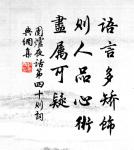 語言多矯飾
則人品心術
盡屬可疑
圍爐夜話第四十則詞
典網集